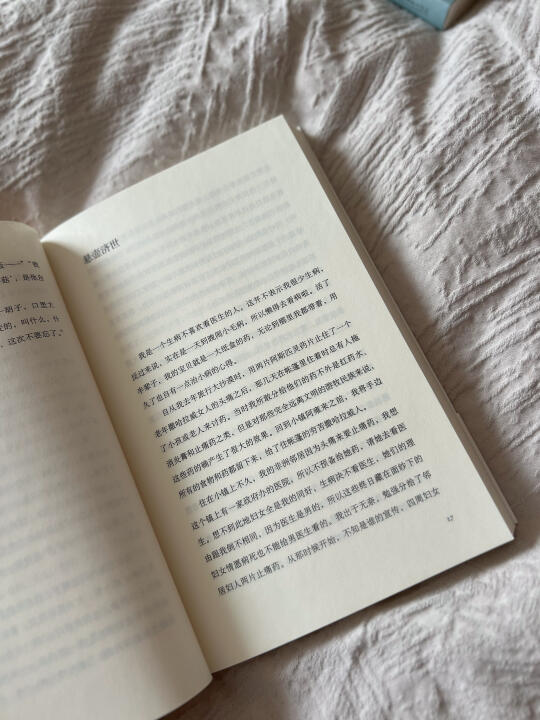 菇——”“教
菇”，是他在
一胡子，口里大
叫什么，什
，这次不要忘了。”
悬壶济世
我是一个生病不喜欢看医生的人。这并不表示我很少生病，
反过来说，实在是一天到晚闹小毛病，所以懒得去看病啦。活了
半辈子，我的宝贝就是一大纸盒的药，无论到哪里我都带着，用
久了也自有一点治小病的心得。
自从我去年旅行大沙漠时，用两片阿斯匹灵药片止住了一个
老年撒哈拉威女人的头痛之后，那几天在帐篷里住着时总有人拖
了小孩或老人来讨药。当时我所敢分给他们的药不外是红药水、
消炎膏和止痛药之类。但是对那些完全远离文明的游牧民族来说，
这些药的确产生了很大的效果。回到小镇阿雍来之前，我将手边
所有的食物和药都留下来，给了住帐篷的穷苦撒哈拉威人。
住在小镇上不久，我的非洲邻居因为头痛来要止痛药，我想
这个镇上有一家政府办的医院，所以不预备给她药，请她去看医
生。想不到此地妇女全是我的同好，生病决不看医生，她们的理
由跟我倒不相同，因为医生是男的，所以这些终日藏在面纱下的
妇女情愿病死也不能给男医生看的。我出于无奈，勉强分给了邻
居妇人两片止痛药。从那时候开始，不知是谁的宣传，四周妇女
17